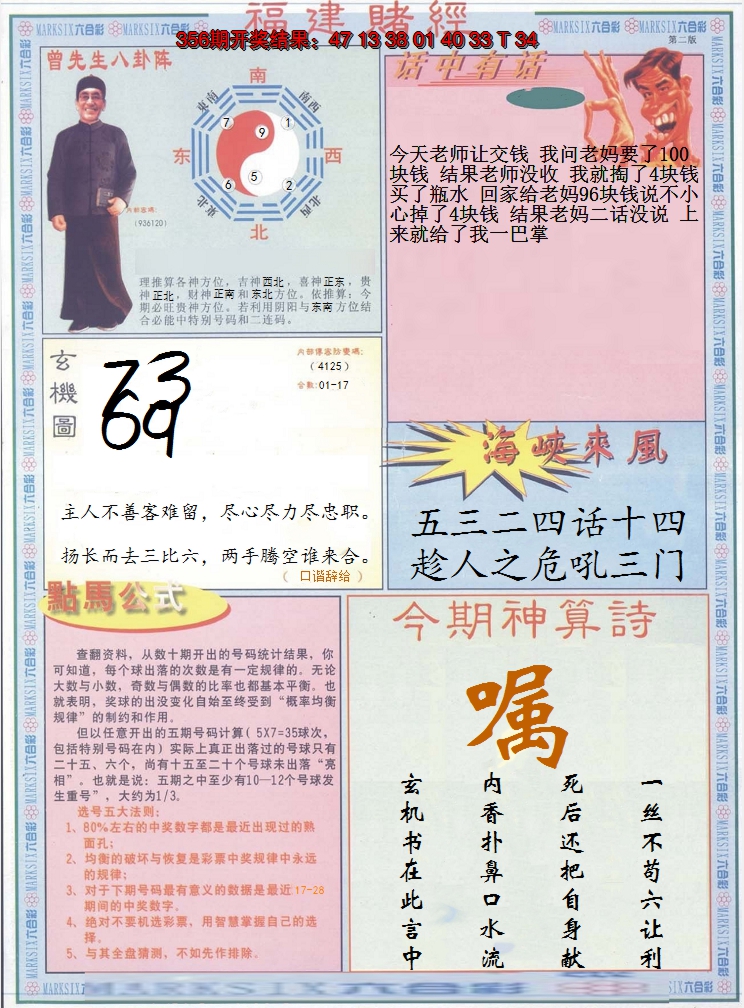 福建賭經
356期开奖结果：47 13 38 01 40 33 T 34
MARKSIX六合彩 MARKSIX六合彩 MARKSIX六合彩
第二版
曾先生八卦阵
南
东南
南西
7
9
1
东
西
6
5
2
東北
北西
北
内部密碼:
(936120)
理推算各神方位，吉神西北，喜神正东，贵
神正北，财神正南和东北方位。依推算：今
期必旺贵神方位。若利用阴阳与东南方位结
合必能中特别号码和二连码。
话中有话
今天老师让交钱 我问老妈要了100
块钱 结果老师没收 我就掏了4块钱
买了瓶水 回家给老妈96块钱说不小
心掉了4块钱 结果老妈二话没说 上
来就给了我一巴掌
玄機圖
内部傳密防变碼:
(4125)
合数:01-17
73
69
主人不善客难留，尽心尽力尽忠职。
扬长而去三比六，两手腾空谁来合。
（ 口谐辞给 ）
海峡來風
五三二四话十四
趁人之危吼三门
點馬公式
查翻资料，从数十期开出的号码统计结果，你
可知道，每个球出落的次数是有一定规律的。无论
大数与小数，奇数与偶数的比率也都基本平衡。也
就表明，奖球的出没变化自始至终受到“概率均衡
规律”的制约和作用。
但以任意开出的五期号码计算( 5X7=35球次，
包括特别号码在内) 实际上真正出落过的号球只有
二十五、六个，尚有十五至二十个号球未出落“亮
相”。也就是说：五期之中至少有10—12个号球发
生重号”，大约为1/3。
选号五大法则：
1、80%左右的中奖数字都是最近出现过的熟
面孔；
2、均衡的破坏与恢复是彩票中奖规律中永远
的规律；
3、对于下期号码最有意义的数据是最近17-28
期间的中奖数字。
4、绝对不要机选彩票，用智慧掌握自己的选
择。
5、与其全盘猜测，不如先作排除。
今期神算詩
嘱
一丝不苟六让利
死后还把自身献
内香扑鼻口水流
玄机书在此言中